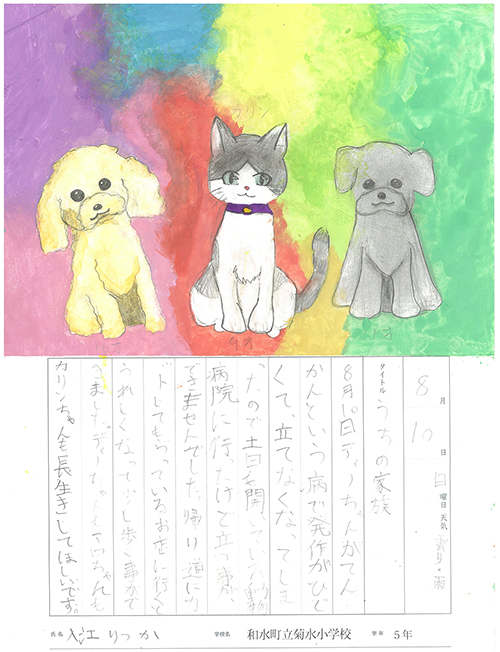 カリン
リオ
8月10日 日曜日 天気 曇り・雨
タイトル うちの家族
8月10日ディノちゃんがてん
かんという病で発作がひど
くて、立てなくなってしま
ったので土日も開いている動物
病院に行ったけど立つ事が、
できませんでした。帰り道にカ
ットしてもらっているお店に行くと
うれしくなって少し歩く事がで
きました。ディノちゃんも
カリンちゃんも長生きしてほしいです。
氏名 入江りっか
学校名 和水町立菊水小学校
学年 5年